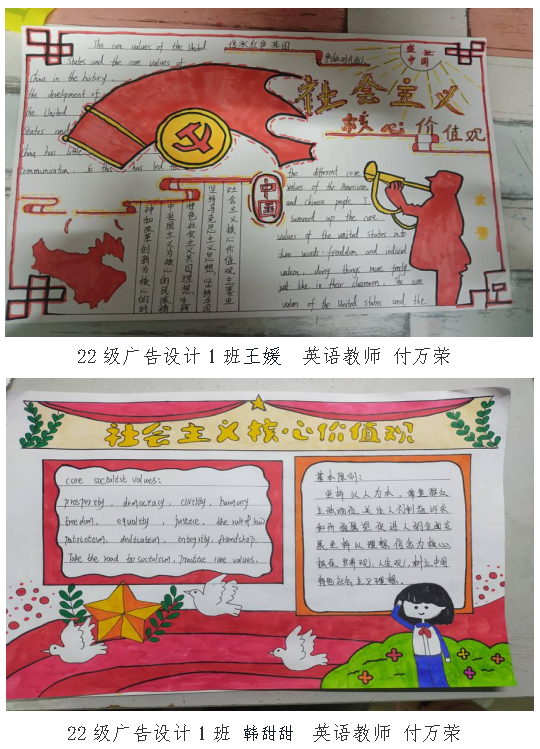 The core values of the United
States and the core values of
China in the history,
the development of
the United
States and
China has little
communication. So this has led to
传承红色基因
争做时代新人
盛世
中国
社会主义
核心价值观
中国
the different core
values of the American
and chinese people. I
summed up the core
values of the united states into
two words: freedom and
doing things more freely
just like in their classroom. The core
values of the United states and the
社会主义核心价值观主要业
坚持马克思主义思想,坚持中国
特色社会主义共同理想,坚持
中爱国主义为核心的民族精
神和改革创新为核心的时
22级广告设计1班王媛 英语教师 付万荣
社会主义核心价值观
core socialist values:
prosperity, democracy, civility, harmony
freedom, equality, justice, the rule of law
patriotism, dedication, integrity, friendship.
Take the road to socialism, practice core values.
基本原则:
坚持以人为本,尊重群众
主体地位,关注人们利益诉求
和价值愿望,促进人的全面发
展坚持以理想信念为核心
抓住世界观、人生观、树立中国
特色社会主义理想。
22级广告设计1班 韩甜甜 英语教师 付万荣